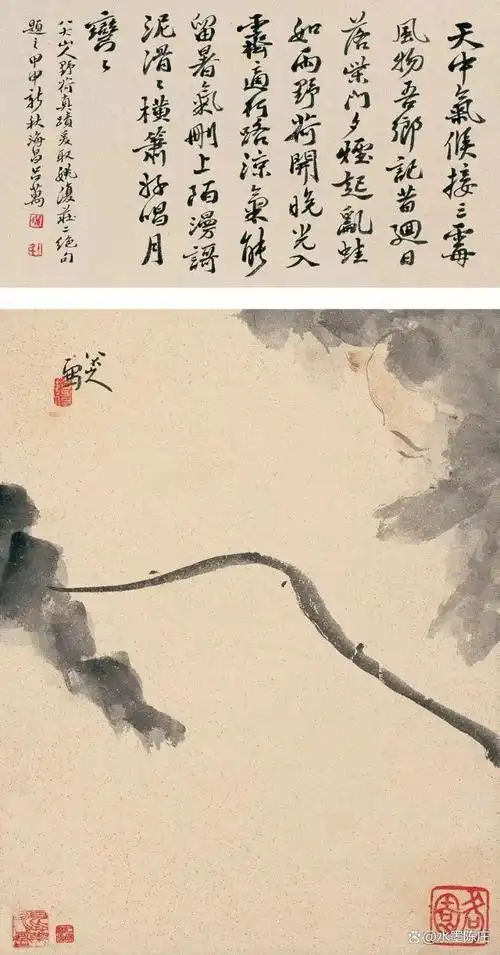 天中氣候接三霉
風物吾鄉記昔廻日
落柴門夕煙起亂蛙
如雨野荷開晚光入
霽適行路涼氣能
留暑氣刪上陌漫謌
泥滑〻橫簫好唱月
彎〻
八大山人野荷真蹟爰取姚復莊二絕句
題之甲申新秋海昌呂萬
八大山人寫
@水墨陈庄